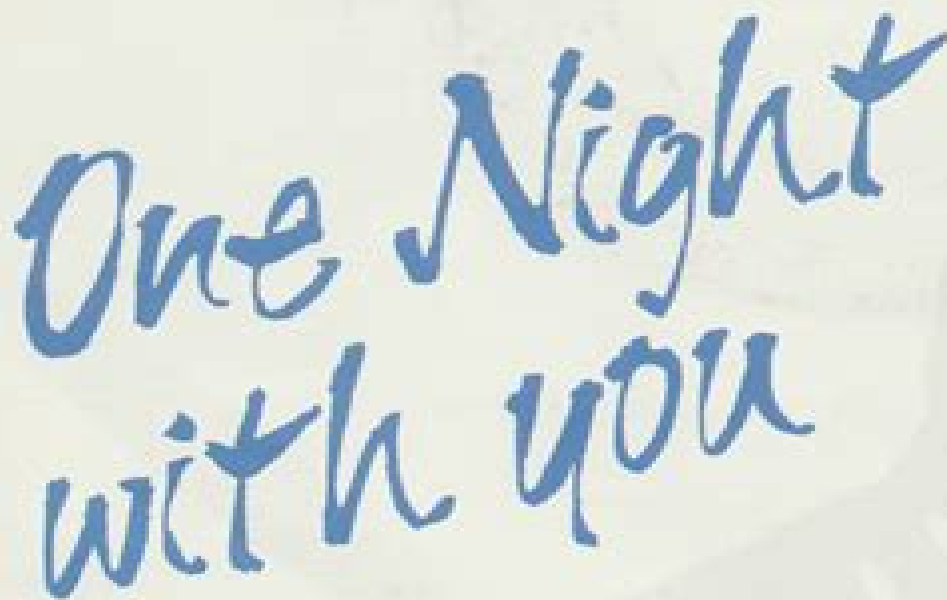 One Night
with you